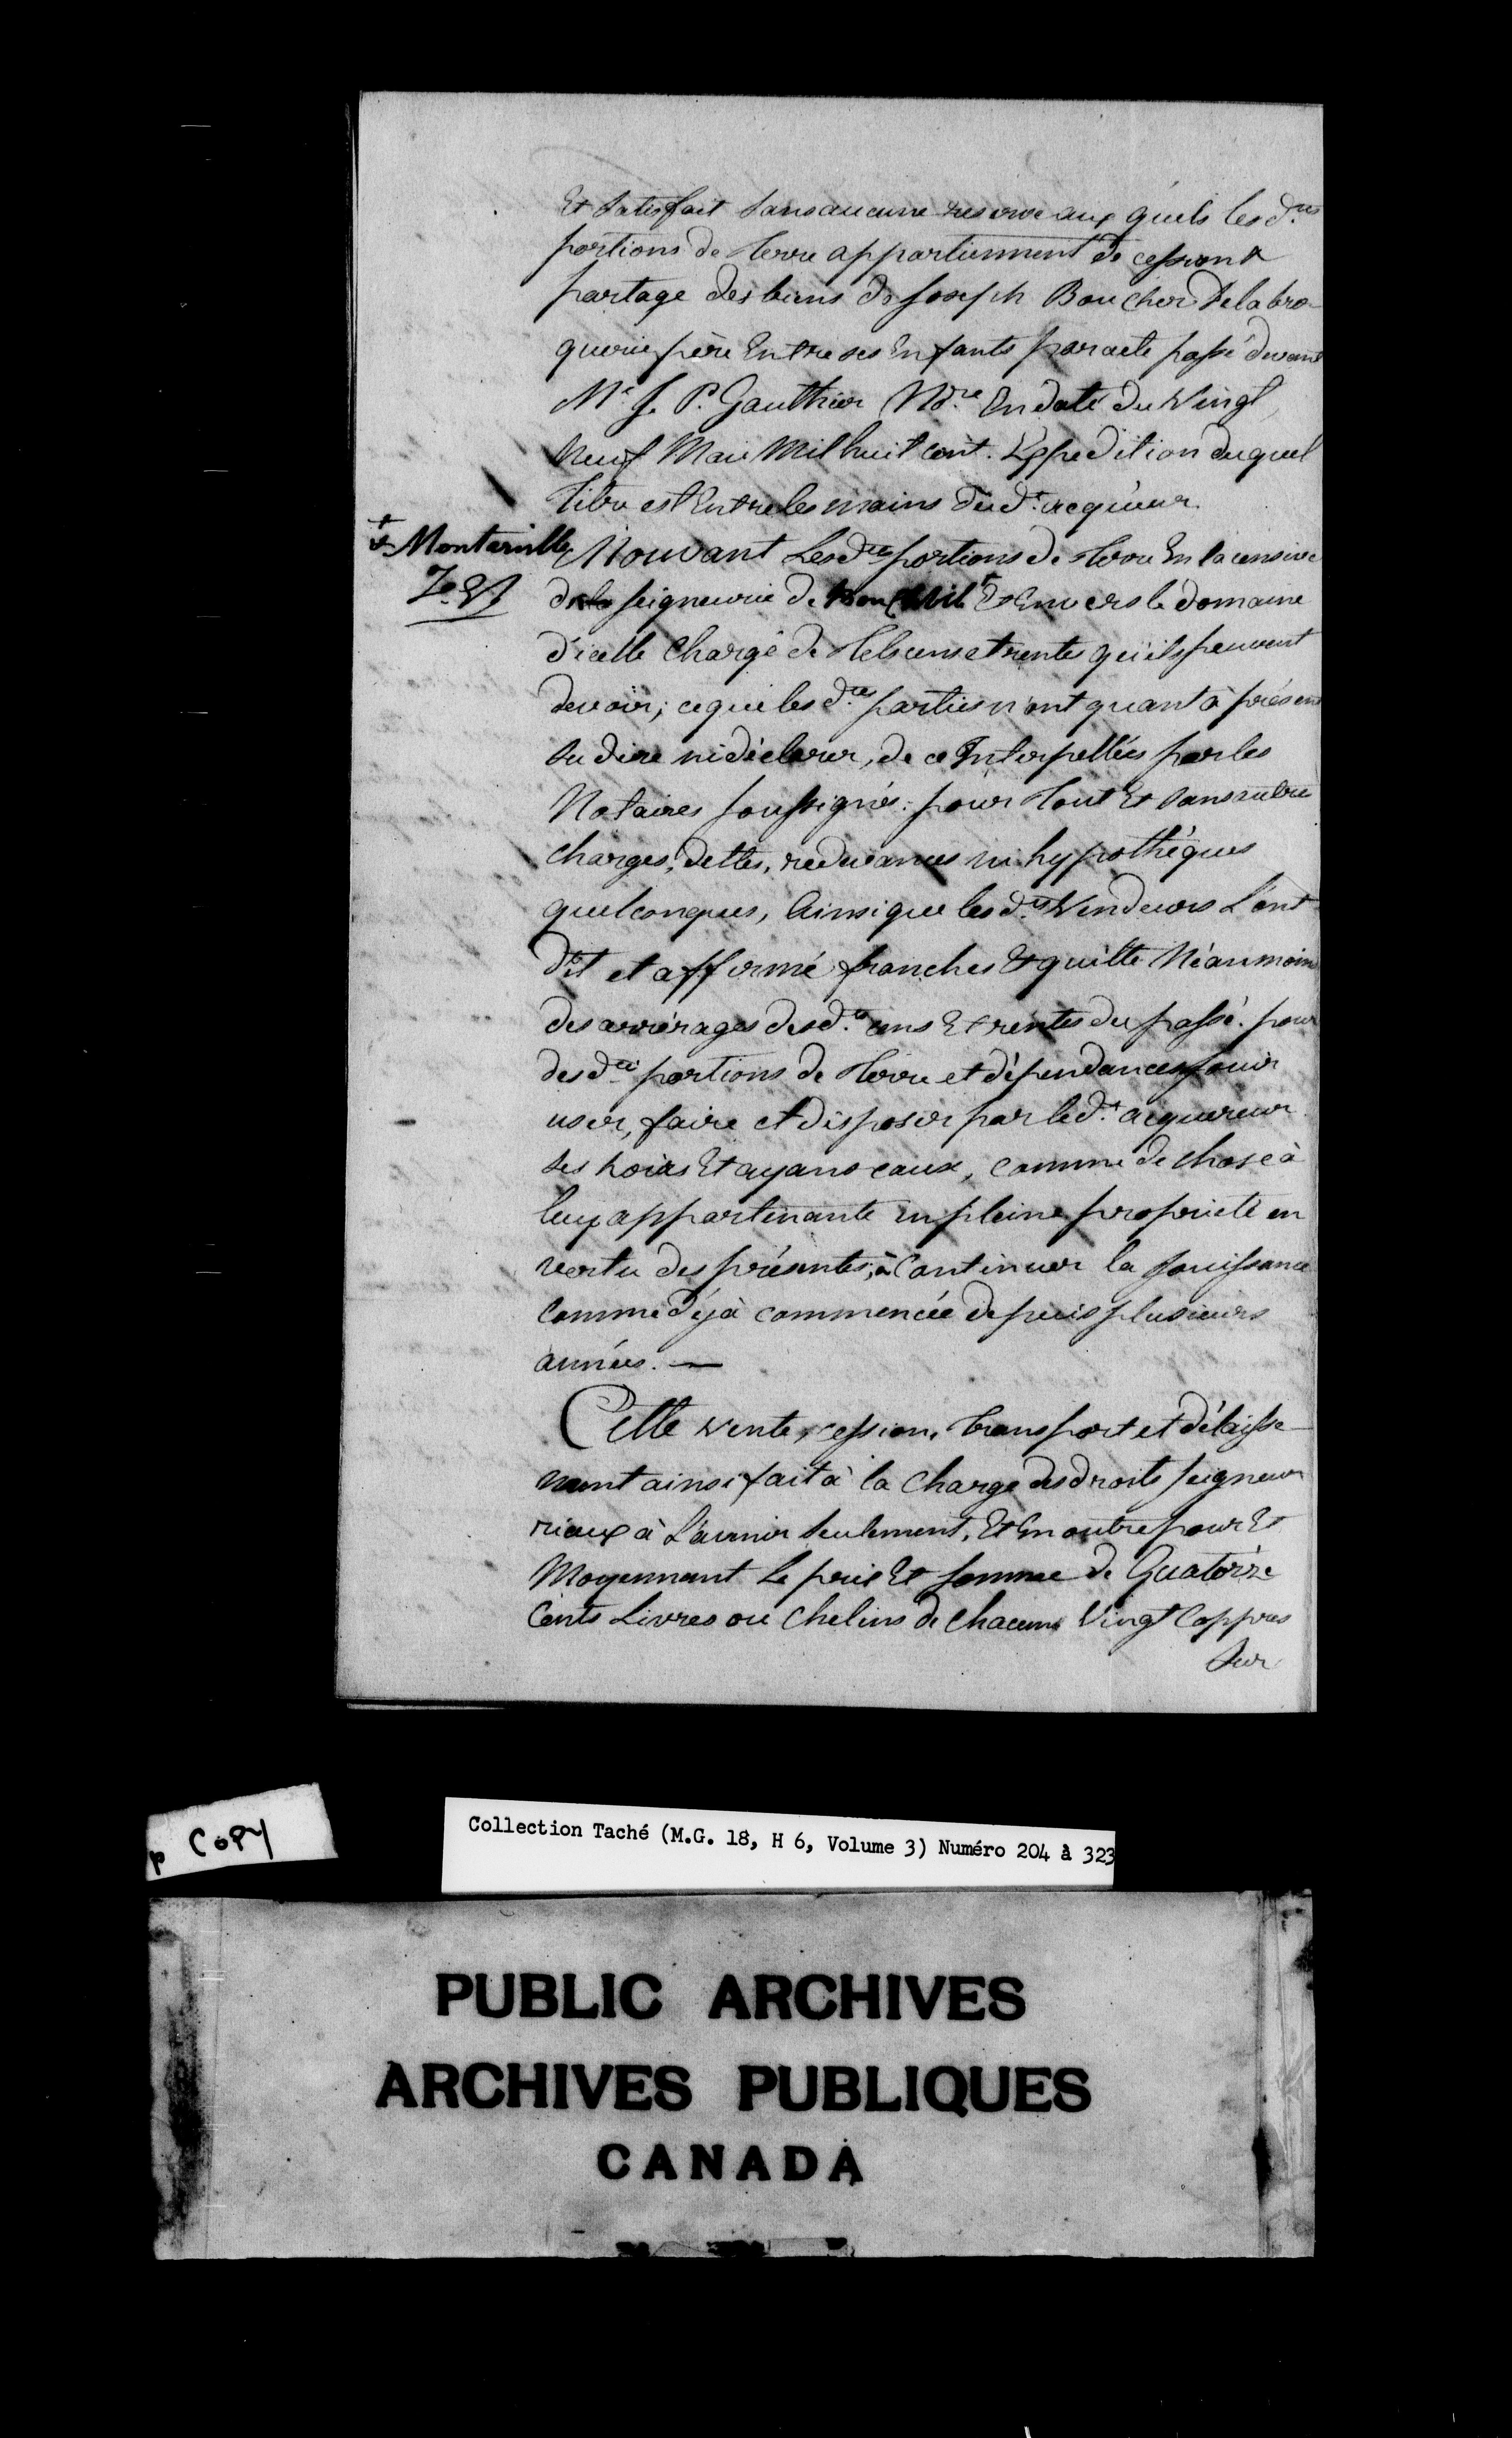 Et Satisfait Sans aucune reserve aux quels les d.tes
portions de Terre appartiennent de cession &
partage des biens de Joseph Boucher Delabro-
querie père Entre ses Enfants par acte passé devant
M.e J. P. Gauthier N.re En date du Vingt
Neuf Mai Mil huit cent. Expedition du quel
Titre est Entre les mains dud.t acquereur.
Montarville Mouvant Les d.tes portions de Terre En la censive
de la Seigneurie de Et Envers le domaine
d'icelle Chargé de Tels cens et rentes qu'ils peuvent
devoir; ce que les d.tes parties n'ont quant à présent
su dire ni déclarer, de ce Interpellées par les
Notaires soussignés: pour Tout Et Sans autres
charges, dettes, redevances ni hypothèques
quelconques, Ainsi que les d.ts Vendeurs L'ont
dit et affirmé franches Et quitte Néanmoins
des arrérages desd.ts cens Et rentes du passé. pour
des d.tes portions de Terre et dépendances jouir
user, faire et disposer par led.t acquereur
Ses hoirs Et ayans cause, comme de chose à
luy appartenante en pleine propriété en
vertu des présentes, à Continuer la Jouissance
comme déjà commencée depuis plusieurs
années. —
Cette vente, cession, Transport et délaisse-
ment ainsi fait à la Charge des droits Seigneu
riaux à L'avenir Seulement, Et En outre pour Et
Moyennant Le prix Et Somme de Quatorze
Cents Livres ou Chelins de chacune Vingt Coppres
Sur
p COPY
Collection Taché (M.G. 18, H 6, Volume 3) Numéro 204 à 323
PUBLIC ARCHIVES
ARCHIVES PUBLIQUES
CANADA